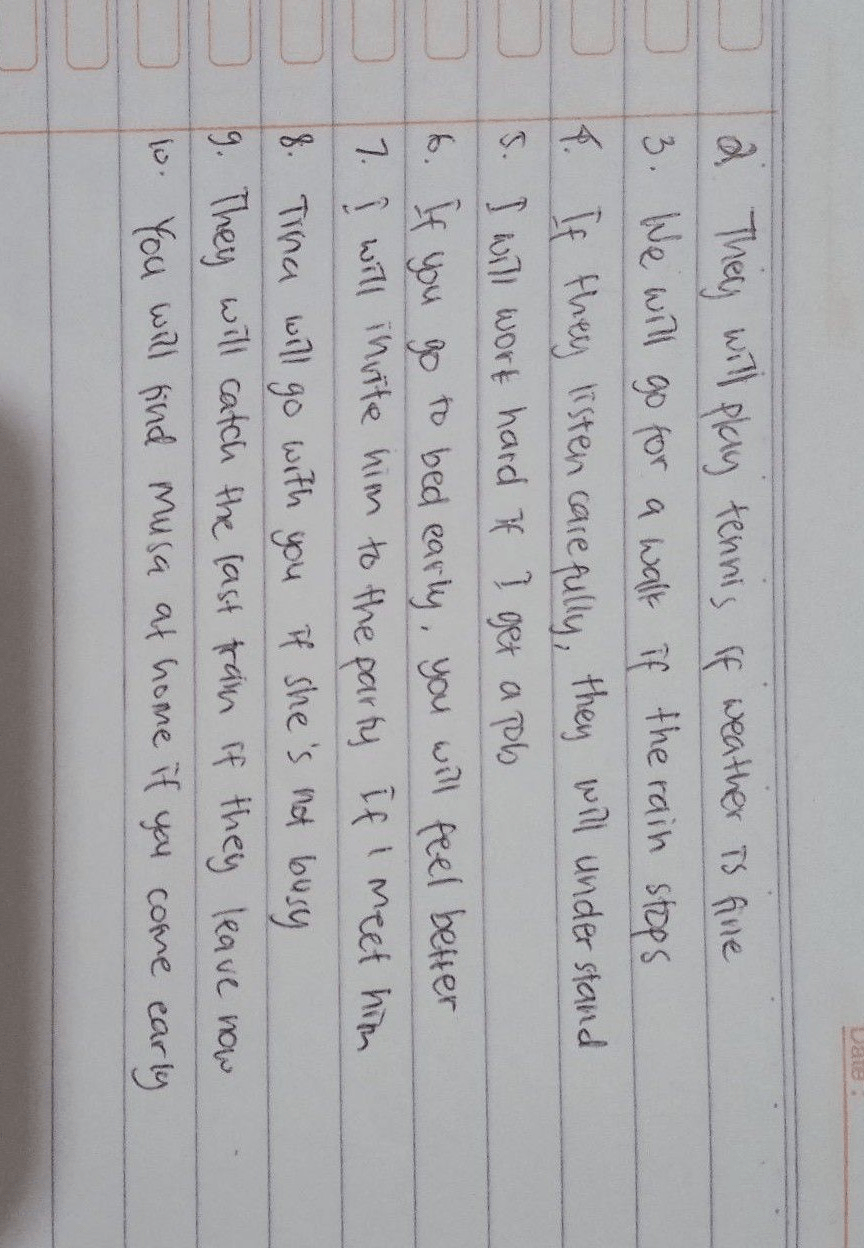 Date:
2. They will play tennis if weather is fine
3. We will go for a walk if the rain stops
4. If they listen carefully, they will understand
5. I will work hard if I get a job
6. If you go to bed early, you will feel better
7. I will invite him to the party if I meet him
8. Tina will go with you if she's not busy
9. They will catch the last train if they leave now
10. You will find Musa at home if you come early